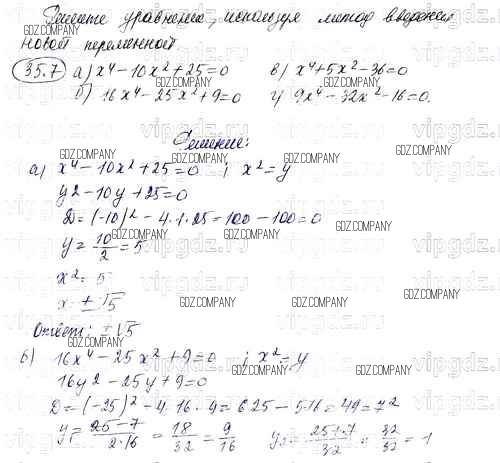 Решите уравнение, используя метод введения
новой переменной
35.7 а) x⁴ – 10x² + 25 = 0 в) x⁴ + 5x² – 36 = 0
б) 16x⁴ – 25x² + 9 = 0 г) 9x⁴ – 32x² – 16 = 0.
Решение:
а) x⁴ – 10x² + 25 = 0 ; x² = y
y2 – 10y + 25 = 0
D = (-10)² – 4·1·25 = 100 – 100 = 0
y = 10/2 = 5
x² = 5
x = ± √5
Ответ: ± √5
б) 16x⁴ – 25x² + 9 = 0 ; x² = y
16y2 – 25y + 9 = 0
D = (-25)² – 4·16·9 = 625 – 576 = 49 = 7²
y₁ = 25-7/2·16 = 18/32 = 9/16 y₂ = 25+7/32 = 32/32 = 1
GDZ.COMPANY
vipgdz.ru